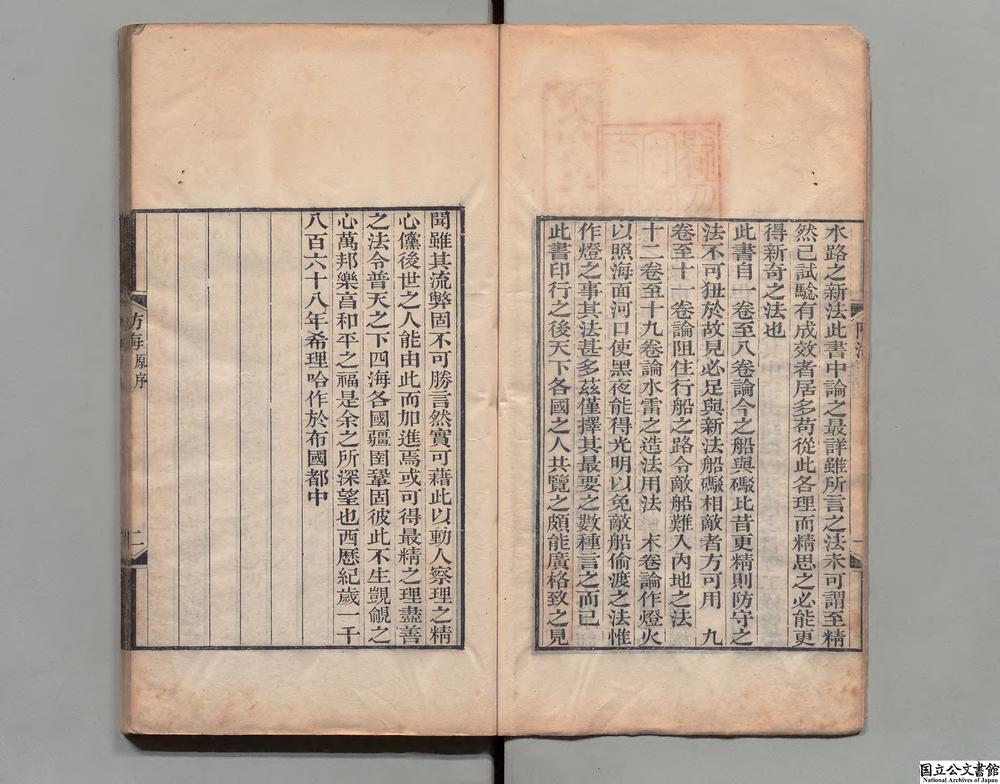 水路之新法此書中論之最詳雖所言之法未可謂至精
然已試驗有成效者居多苟從此各理而精思之必能更
得新奇之法也
此書自一卷至八卷論今之船與礮比昔更精則防守之
法不可狃於故見必足與新法船礮相敵者方可用　九
卷至十一卷論阻住行船之路令敵船難入內地之法
十二卷至十九卷論水雷之造法用法　末卷論作燈火
以照海面河口使黑夜能得光明以免敵船偷渡之法惟
作燈之事其法甚多茲僅擇其最要之數種言之而已
此書印行之後天下各國之人共覽之頗能廣格致之見
聞雖其流弊固不可勝言然實可藉此以動人察理之精
心儻後世之人能由此而加進焉或可得最精之理盡善
之法令普天之下四海各國疆圉鞏固彼此不生覬覦之
心萬邦樂享和平之福是余之所深望也西歷紀歲一千
八百六十八年希理哈作於布國都中
防海原序
二
国立公文書館
National Archives of Japan